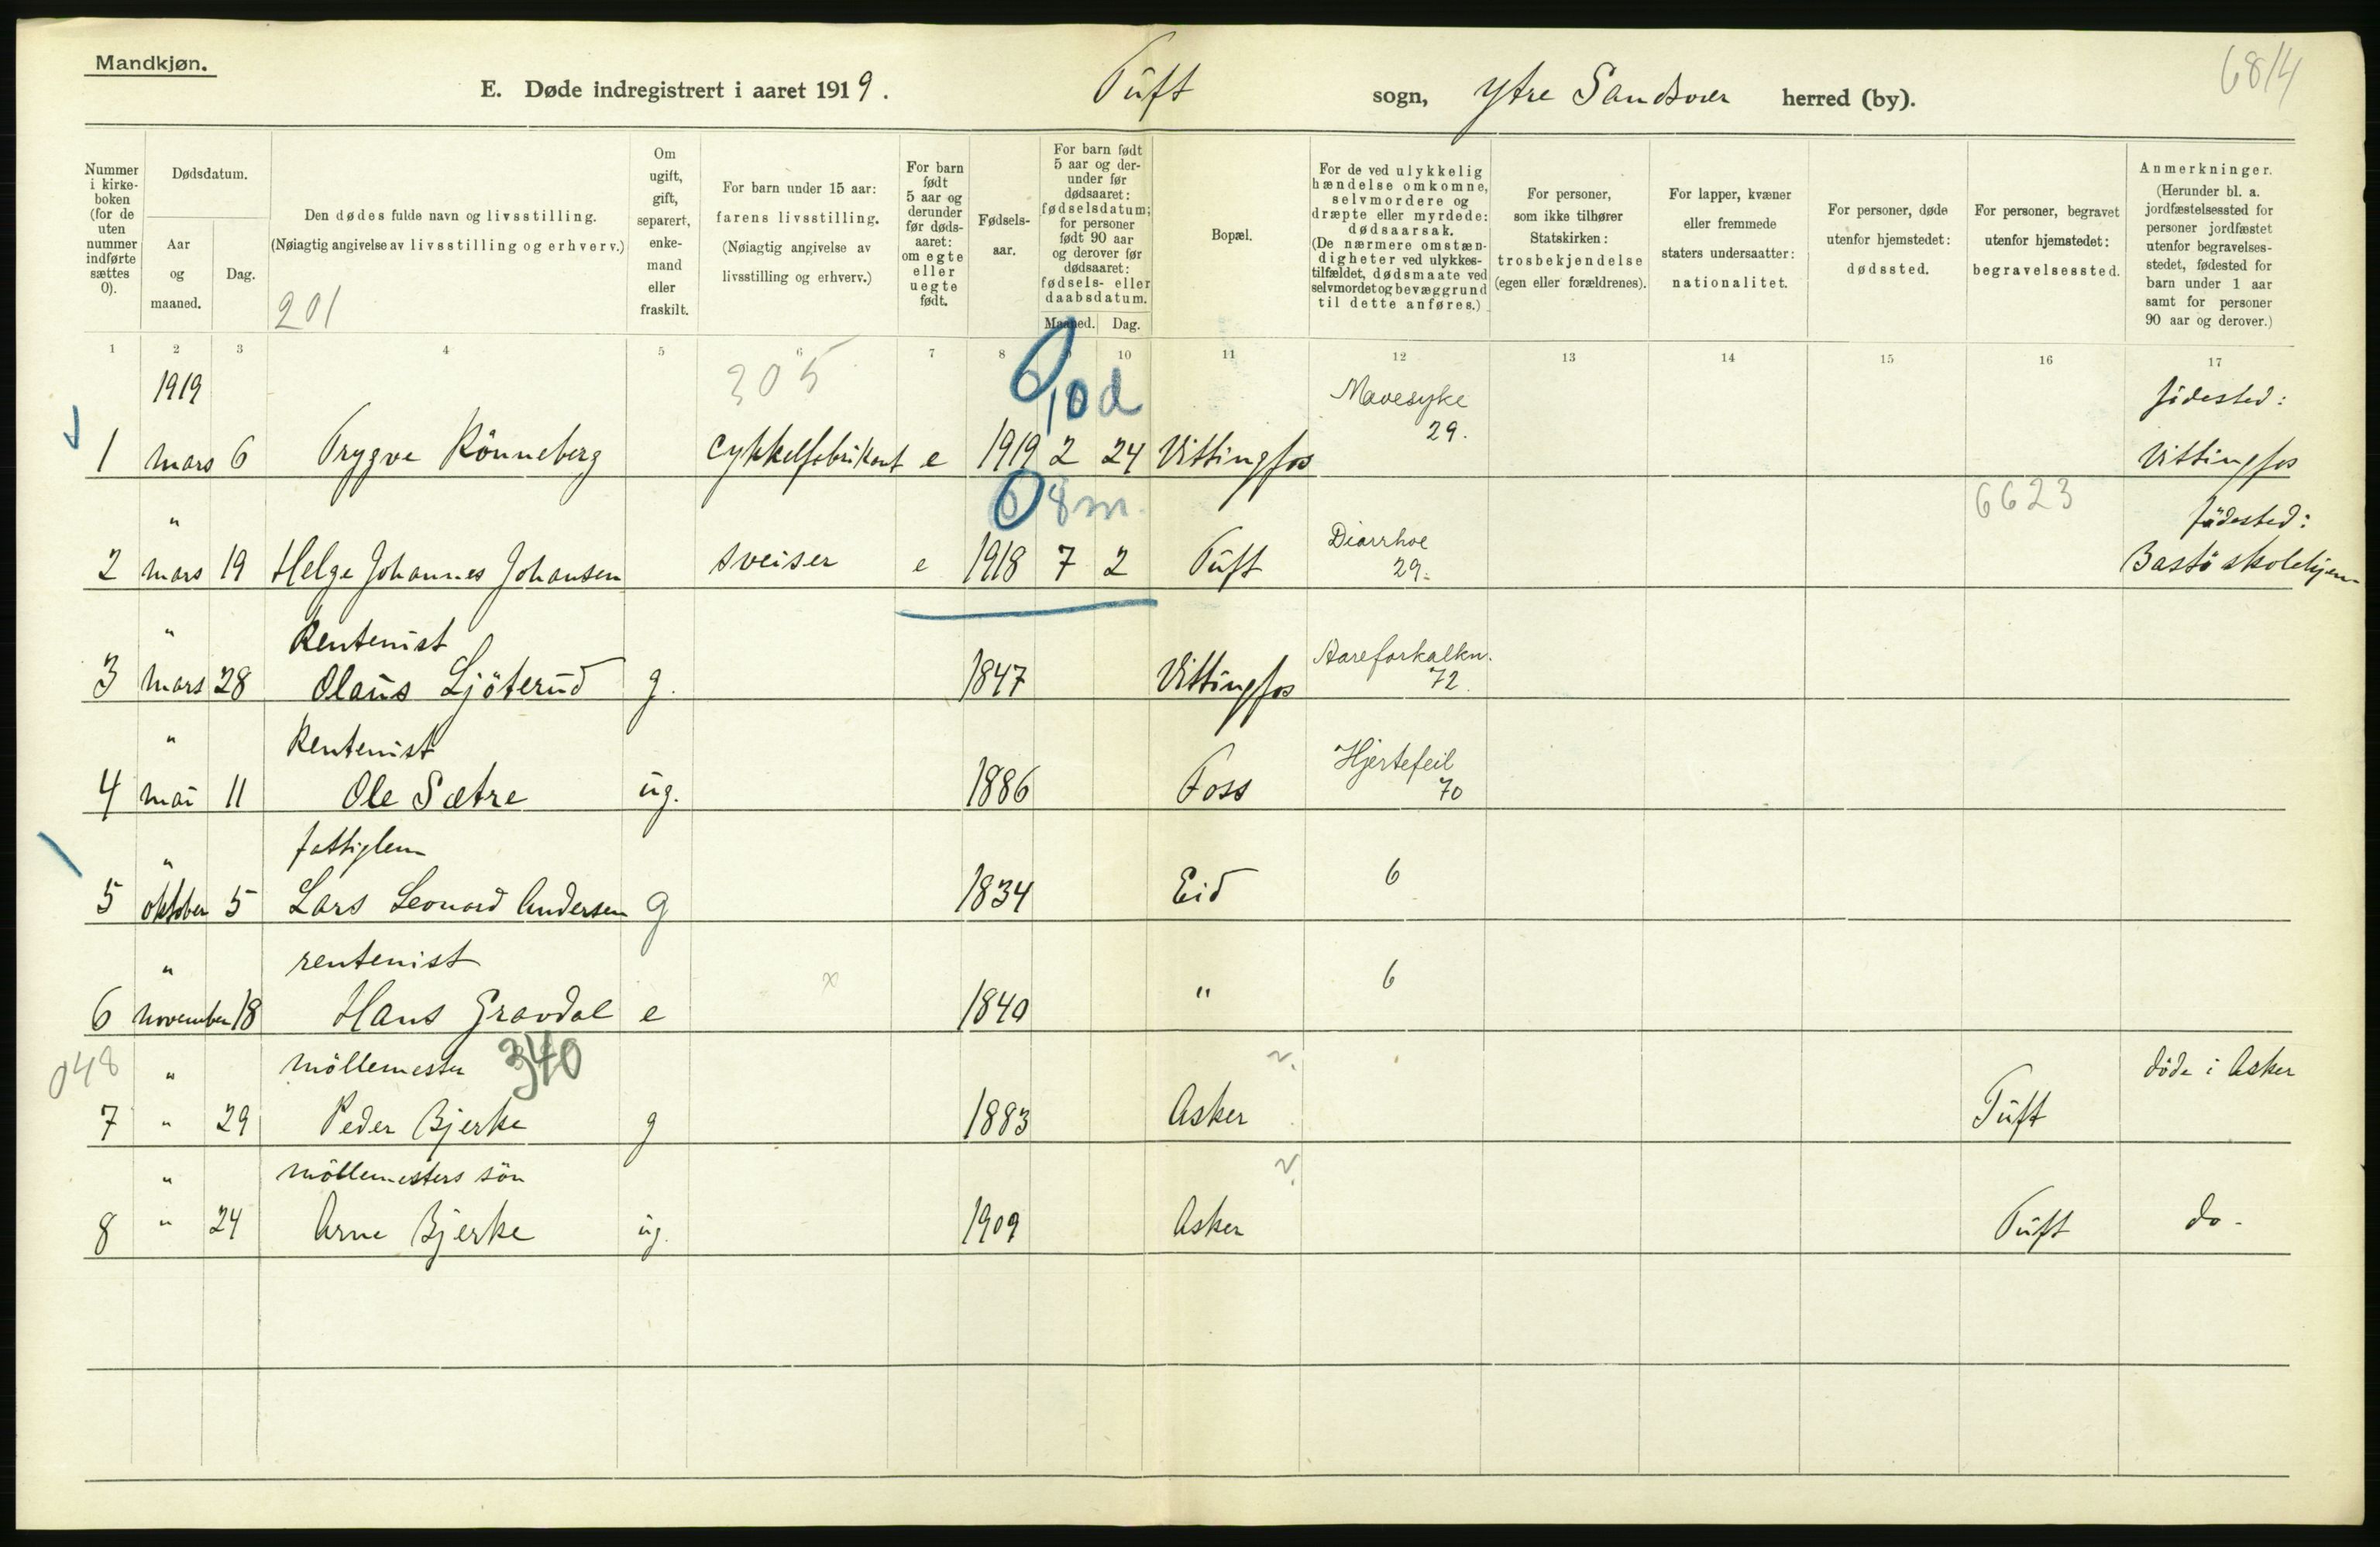 Mandkjøn.
6814
E. Døde indregistrert i aaret 1919. Tuft sogn, Ytre Sandsvær herred (by).
Nummer i kirkeboken (for de uten nummer indførte sættes 0).
Dødsdatum.
Aar og maaned.
Dag.
Den dødes fulde navn og livsstilling.
(Nøiagtig angivelse av livsstilling og erhverv.)
201
Om ugift, gift, separert, enkemand eller fraskilt.
For barn under 15 aar: farens livsstilling.
(Nøiagtig angivelse av livsstilling og erhverv.)
For barn født 5 aar og derunder før dødsaaret: om egte eller uegte født.
Fødselsaar.
For barn født 5 aar og derunder før dødsaaret: fødselsdatum; for personer født 90 aar og derover før dødsaaret: fødsels- eller daabsdatum.
Maaned. Dag.
Bopæl.
For de ved ulykkelig hændelse omkomne, selvmordere og dræpte eller myrdede: dødsaarsak.
(De nærmere omstændigheter ved ulykkestilfældet, dødsmaate ved selvmordet og bevæggrund til dette anføres.)
For personer, som ikke tilhører Statskirken: trosbekjendelse (egen eller forældrenes).
For lapper, kvæner eller fremmede staters undersaatter: nationalitet.
For personer, døde utenfor hjemstedet: dødssted.
For personer, begravet utenfor hjemstedet: begravelsessted.
Anmerkninger.
(Herunder bl. a. jordfæstelsessted for personer jordfæstet utenfor begravelsesstedet, fødested for barn under 1 aar samt for personer 90 aar og derover.)
1 2 3 4 5 6 7 8 9 10 11 12 13 14 15 16 17
1919 305 0 10 d Mavesyke födested:
1 mars 6 Trygve Rönneberg Cykkelfabrikant e 1919 2 24 Vittingfos 29. Vittingfos
" 0 8 m. 6623 födested:
2 mars 19 Helge Johannes Johansen sveiser e 1918 7 2 Tuft Diarrhoe 29. Bastö skolehjem
" Rentenist
3 mars 28 Olaus Ljöterud g. 1847 Vittingfos Aareforkalkn. 72.
" Rentenist
4 mai 11 Ole Sætre ug. 1886 Foss Hjertefeil 70
" fattiglem
5 oktober 5 Lars Leonard Andersen g 1834 Eid 6
" rentenist
6 november 18 Hans Gravdal e x 1840 " 6
048 " möllemester 340 döde i Asker
7 " 29 Peder Bjerke g 1883 Asker Tuft
" möllemesters sön
8 " 24 Arne Bjerke ug. 1909 Asker Tuft do-